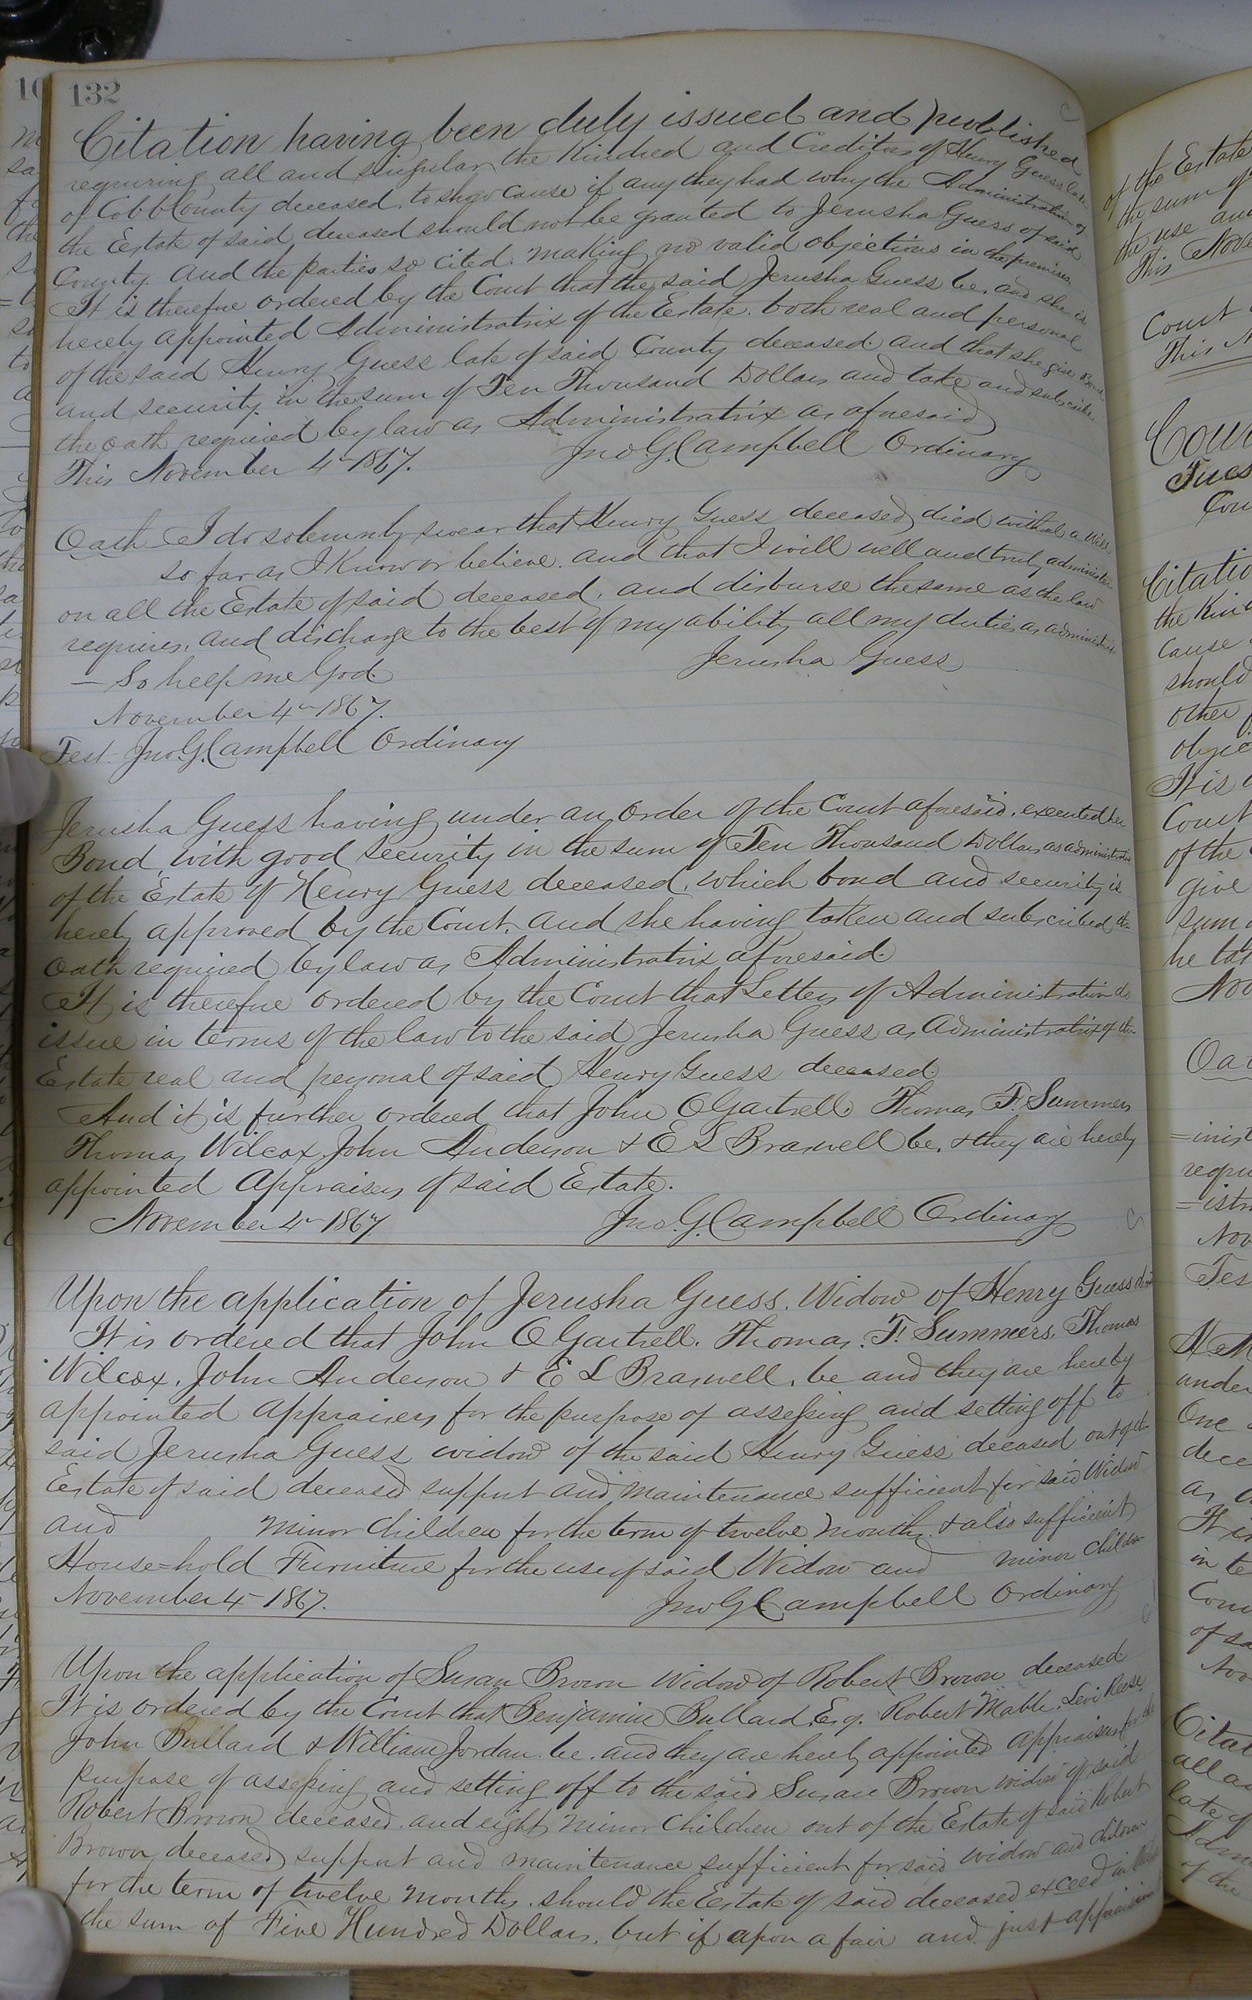 132
Citation having been duly issued and published
requiring all and singular the Kindred and Creditors of Henry Guess late
of Cobb County deceased, to show cause if any they had why the Administration of
the Estate of said deceased should not be granted to Jerusha Guess of said
County. And the parties so cited making no valid objections in the premises
It is therefore ordered by the Court that the said Jerusha Guess be, and she is
hereby appointed Administratrix of the Estate, both real and personal
of the said Henry Guess late of said County deceased and that she give Bond
and security in the sum of Ten Thousand Dollars and take and subscribe
the oath required by law as Administratrix as aforesaid
This November 4th 1867. Jno. G. Campbell Ordinary
Oath I do solemnly swear that Henry Guess deceased, died without a Will
so far as I Know or believe, and that I will well and truly administer
on all the Estate of said deceased, and disburse the same as the law
requires, and discharge to the best of my ability all my duties as administratrix
— So help me God. Jerusha Guess
November 4th 1867.
Test Jno. G. Campbell Ordinary
Jerusha Guess having under an order of the Court aforesaid, executed her
Bond, with good security in the sum of Ten Thousand Dollars as administratrix
of the Estate of Henry Guess deceased, which bond and security is
hereby approved by the Court, and she having taken and subscribed the
Oath required by law as Administratrix aforesaid.
It is therefore ordered by the Court that Letters of Administration do
issue in terms of the law to the said Jerusha Guess as Administratrix of the
Estate real and personal of said Henry Guess deceased
And it is further ordered that John O Gartrell, Thomas F. Summers
Thomas Wilcox, John Anderson & E L Braswell be, & they are hereby
appointed Appraisers of said Estate.
November 4th 1867 Jno. G. Campbell Ordinary
Upon the application of Jerusha Guess, Widow of Henry Guess decd
It is ordered that John O Gartrell, Thomas F. Summers, Thomas
Wilcox, John Anderson & E L Braswell, be and they are hereby
appointed Appraisers for the purpose of assessing and setting off to
said Jerusha Guess widow of the said Henry Guess deceased out of the
Estate of said deceased support and maintenance sufficient for said Widow
and minor children for the term of twelve months & also sufficient
House=hold Furniture for the use of said Widow and minor children
November 4th 1867. Jno G Campbell Ordinary
Upon the application of Susan Brown Widow of Robert Brown deceased
It is ordered by the Court that Benjamin Bullard, Esq. Robert Mable, Levi Reese,
John Bullard & William Jordan be, and they are hereby appointed Appraisers for the
purpose of assessing and setting off to the said Susan Brown widow of said
Robert Brown deceased, and eight minor children out of the Estate of said Robert
Brown, deceased, support and maintenance sufficient for said widow and children
for the term of twelve months, should the Estate of said deceased exceed in
the sum of Five Hundred Dollars, but if upon a fair and just
of the Estate
the sum of
the use and
This
Court
This
Tues
Citatio
the Kin
cause
should
other
objec
It is
Court
of the
give
sum
Nov
Oa
=inist
requ
=istr
Nov
Tes
under
One
dece
as
It is
in te
Cou
of sa
Nov
Citat
all a
late of
Adm
of the